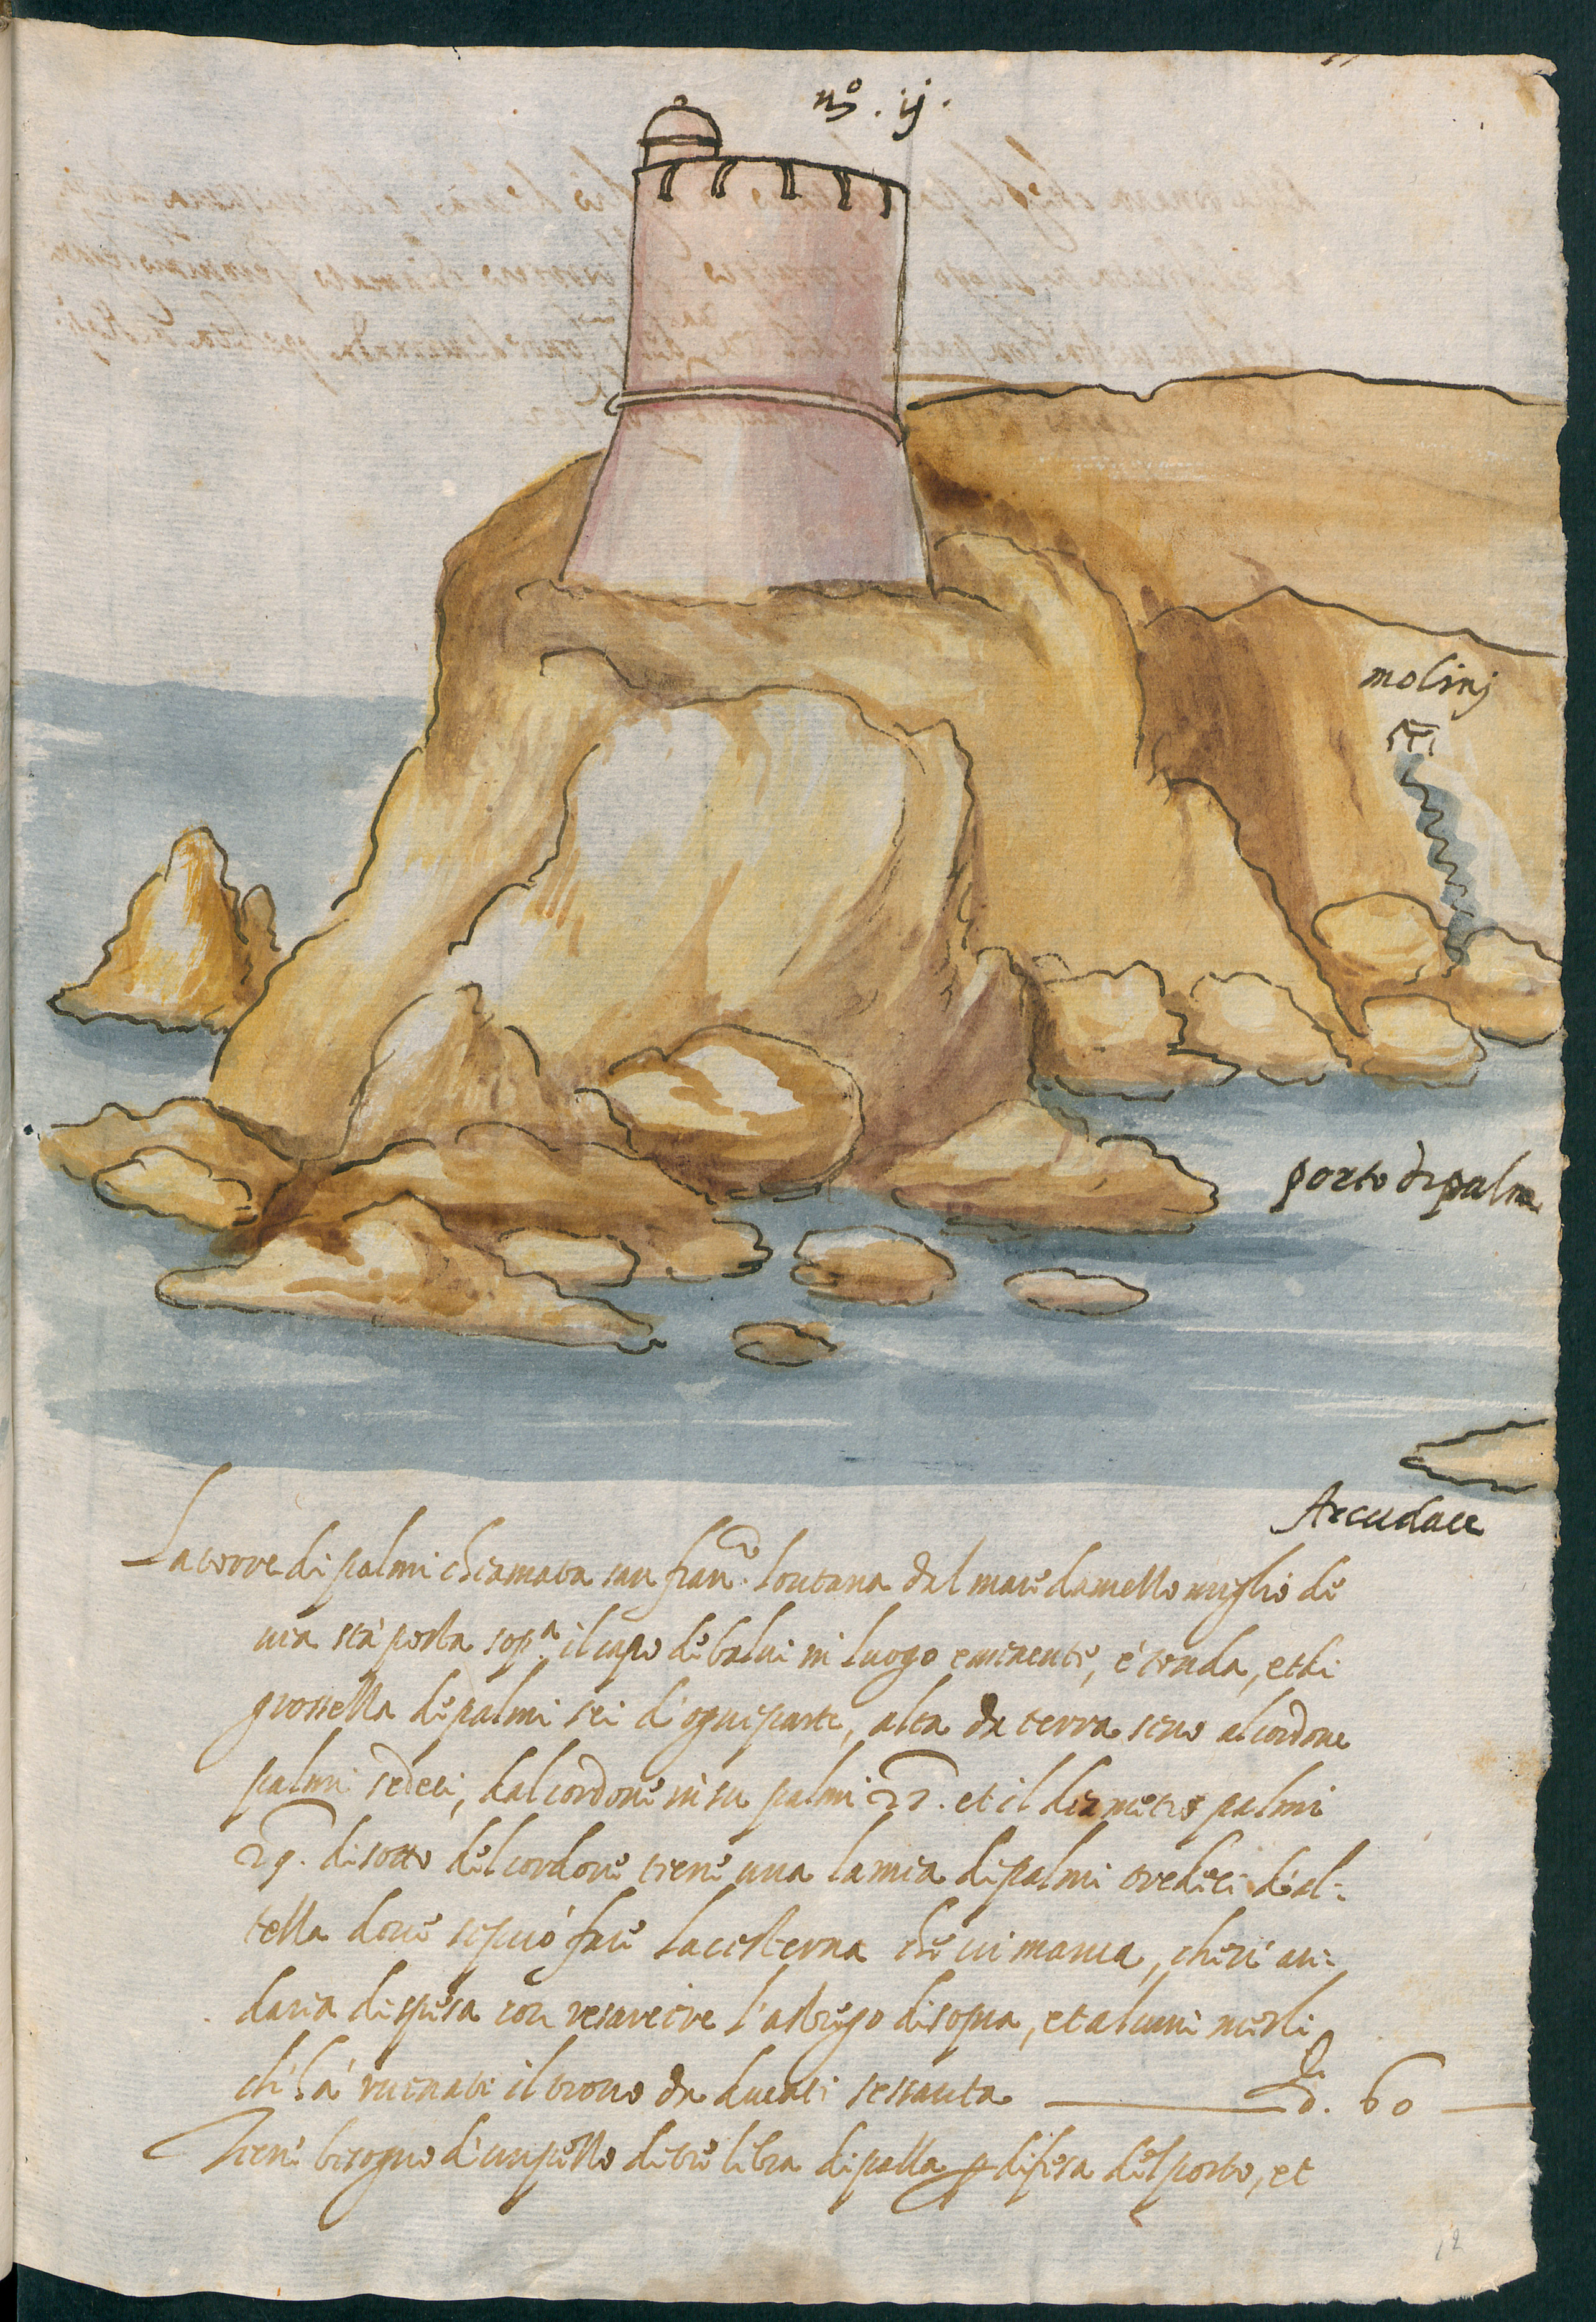 nº. ij.
molinj
porto di palme
Arcudace
La torre di palmi chiamata san franco. lontana dal mare da mezzo miglio de
via sta posta sopa. il capo de in luogo eminente, é tonda, et di
grossezza de palmi sei d'ogni parte, alta da terra sino al cordone
palmi sedeci, dal cordone in su palmi 22. et il diametro palmi
29. di sotto del cordone tiene una lamia di palmi tredici d'al=
tezza dove si può fare la cisterna che vi manca, che vi an=
daria di spesa con resarcire l'astrego di sopra, et alcuni merli
ch'hà ruinati il trono da ducati sessanta — d. 60 —
Tiene bisogno d'un pezzo di tre libra di palla p difesa del porto, et
12